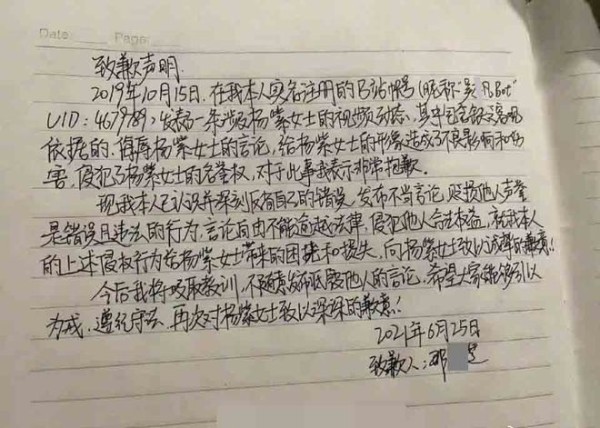 Date: Page:
致歉声明
2019年10月15日,在我本人实名注册的B站帐号(昵称"吴 凡Bot"
UID:4679789)发表一条涉及杨紫女士的视频动态,其中包含缺乏客观
依据的、侮辱杨紫女士的言论,给杨紫女士的形象造成了不良影响和伤
害,侵犯了杨紫女士的名誉权,对于此事我表示非常抱歉。
现我本人已认识并深刻反省自己的错误,发布不当言论,贬损他人声誉
是错误且违法的行为,言论自由不能逾越法律,侵犯他人合法权益,就我本人
的上述侵权行为给杨紫女士带来的困扰和损失,向杨紫女士致以诚挚的歉意!
今后我将吸取教训,不随意发布贬损他人的言论,希望大家能够引以
为戒,遵纪守法,再次对杨紫女士致以深深的歉意!
2021年6月25日
致歉人:邓